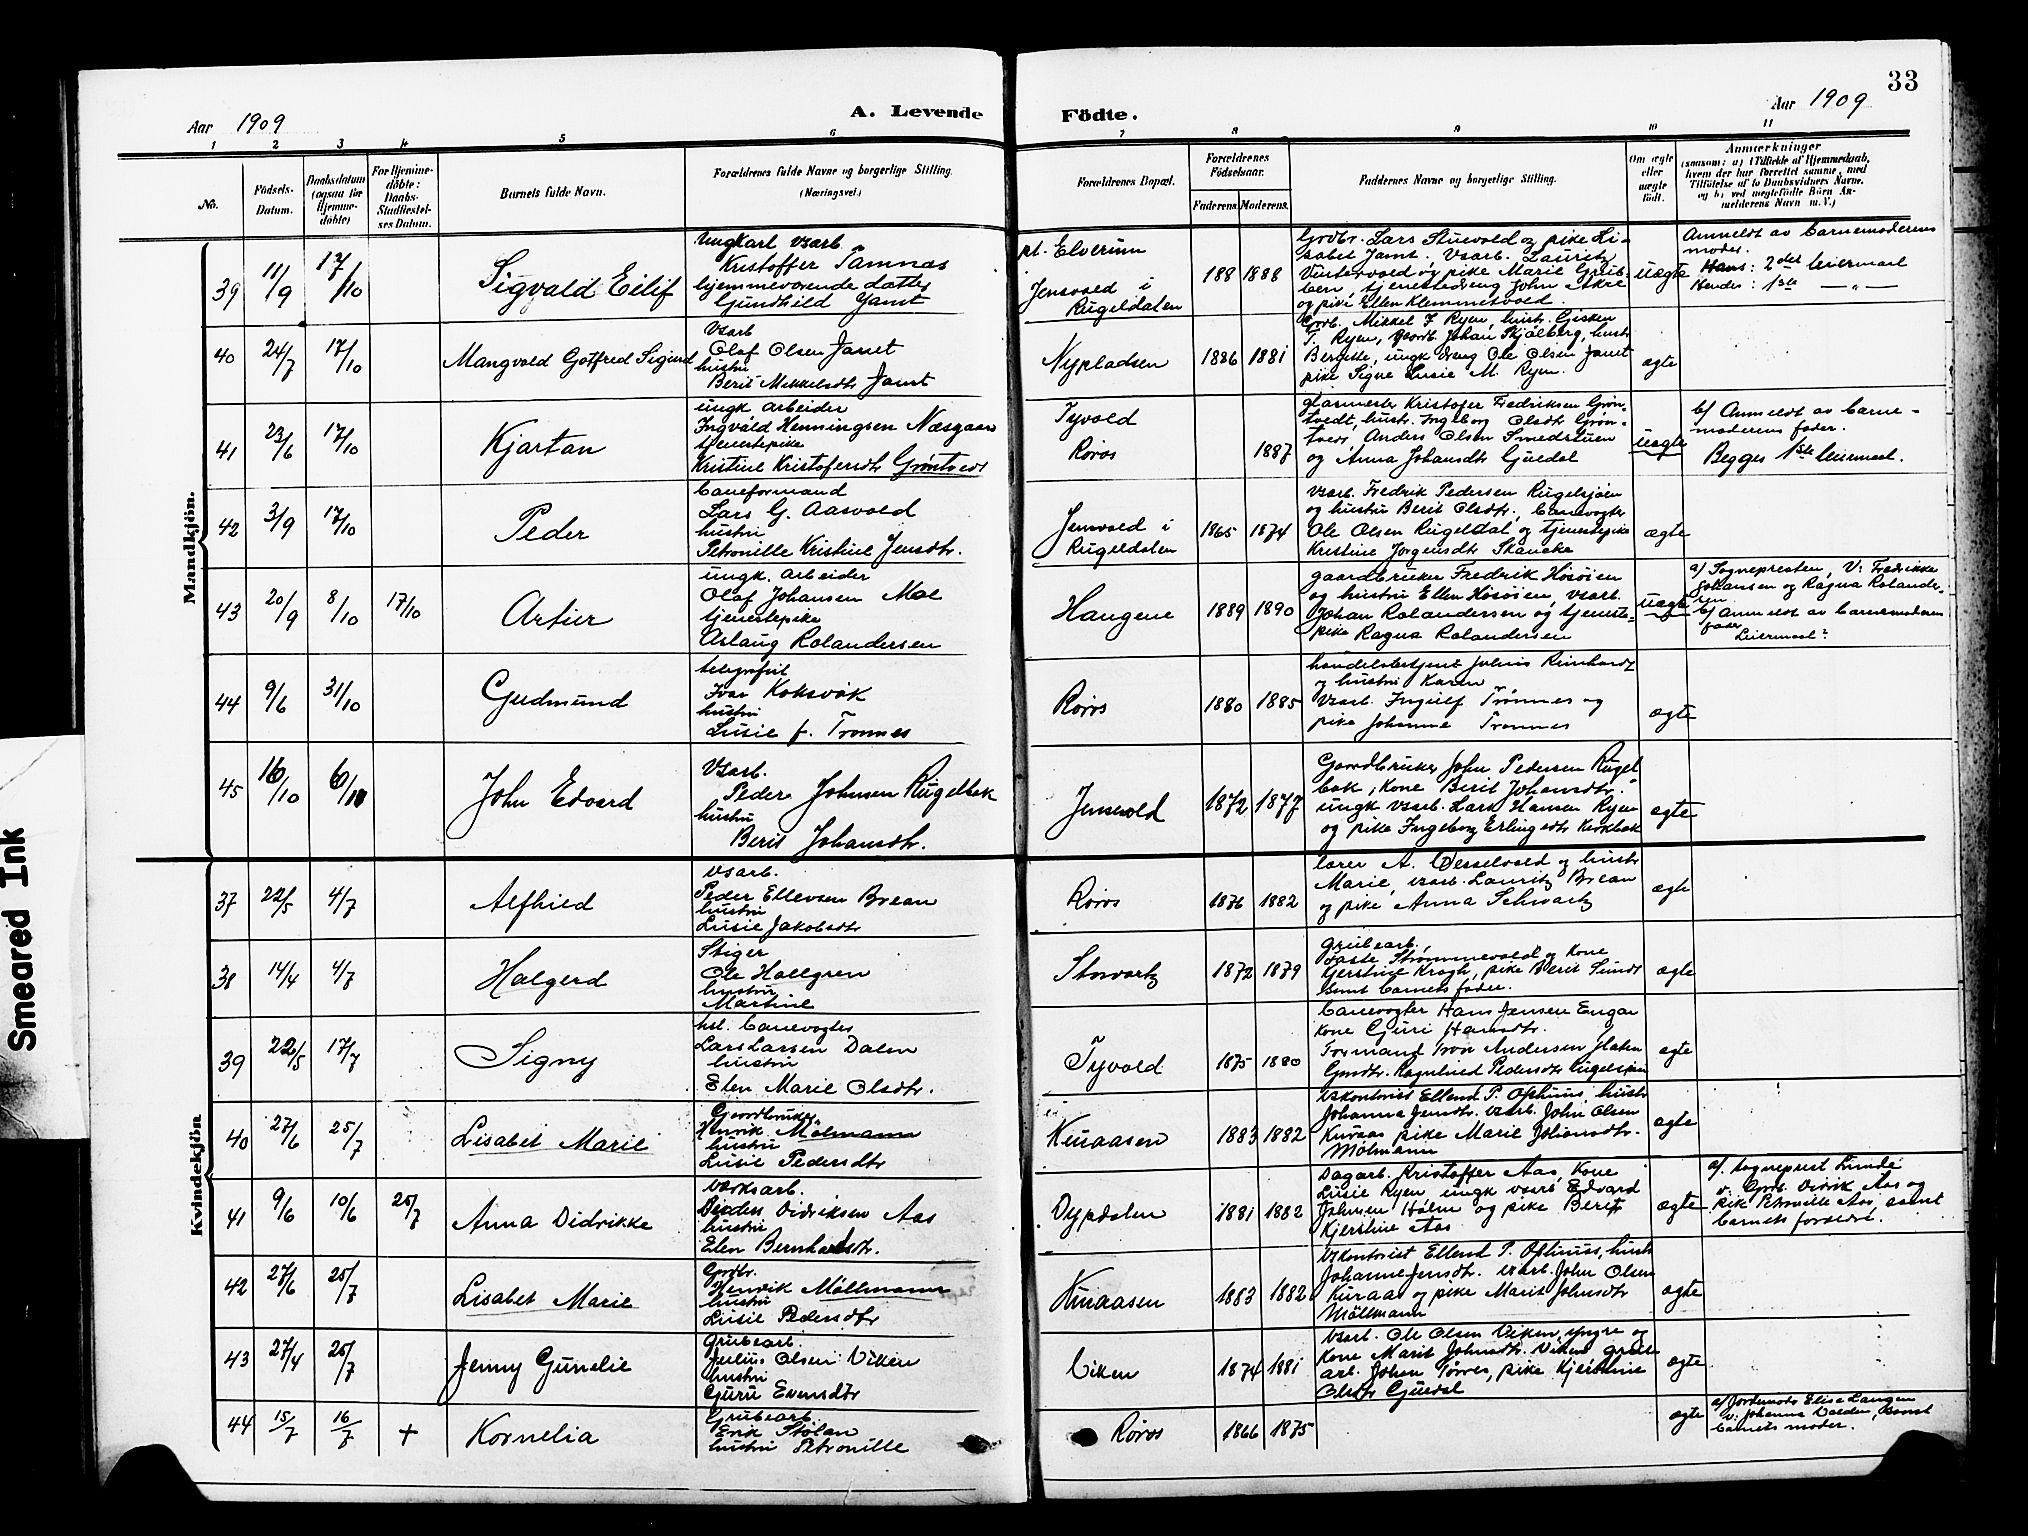 33
Aar 1909
A. Levende
Födte.
Aar 1909
1 2 3 4 5 6 7 8 9 10 11
No.
Födsels-
Datum.
Daabsdatum
(ogsaa for
Hjemme-
döbte)
For Hjemme-
döbte:
Daabs-
Stadfæstel-
ses Datum.
Barnets fulde Navn.
Forældrenes fulde Navne og borgerlige Stilling.
(Næringsvei.)
Forældrenes Bopæl.
Forældrenes
Födselsaar.
Faderens. Moderens.
Faddernes Navne og borgerlige Stilling.
Om ægte
eller
uægte
födt.
Anmærkninger
(saasom: a) i Tilfælde af Hjemmedaab,
hvem der har forrettet samme, med
Tilföielse af to Daabsvidners Navne.
og b) ved uægtefödte Börn An-
melderens Navn m. V.)
Mandkjön.
39 11/9 17/10 Sigvald Eilif
Ungkarl vsarb.
Kristoffer Tamnes
hjemmeværende datter
Gundhild Jamt
pt. Elverum
Jensvold i
Rugeldalen
188 1888
Grdbr. Lars Stuevold og pike Li-
sabet Jamt, Vsarb. Lauritz
Vintervold og pike Marie Grub-
ben, tjenestedreng John
og pike Ellen Klemmetvold.
uægte
Anmeldt av barnemoderens
moder.
Hans: 2det leiermaal
Hendes: 1ste — " —
40 24/7 17/10 Mangvald Gotfred Sigurd
Vsarb
Olaf Olsen Jamt
hustru
Berit Mikkelsdtr Jamt
Nypladsen
1886 1881
Grdb. Mikkel J Ryen, hustr. Gisken
T. Ryen, Johan Skjølberg, hustr
ungk dreng Ole Olsen Jamt
pike Signe Lusie M. Ryen.
ægte
41 23/6 17/10 Kjartan
ungk. arbeider
Ingvald Henningsen Næsgaard
tjenestepike
Kristine Kristofersdtr Grøntvedt
Tyvold
Røros
1887
glasmester Kristofer Fredriksen Grøn-
tvedt, hustr. Ingeborg Olsdtr Grøn-
tvedt Anders Olsen Smedstuen
og Anna Johansdtr Gjuldal
uægte
b/ Anmeldt av barne-
moderens fader.
Begges 1ste leiermaal.
42 3/9 17/10 Peder
baneformand
Lars G. Aasvold
hustru
Petronille Kristine Jensdtr.
Jensvold i
Rugeldalen
1865 1874
vsarb. Fredrik Pedersen Rugelsjøen
og hustru Berit Olsdtr, banevogter
Ole Olsen Rugeldal og tjenestepike
Kristine Jørgensdtr Skancke
ægte
43 20/9 8/10 17/10 Artur
ungk. arbeider
Olaf Johansen Moe
tjenestepike
Aslaug Rolandersen
Haugene
1889 1890
gaardbruker Fredrik Hosøien
og hustru Ellen Hosøien, vsarb.
Johan Rolandersen og tjeneste-
pike Ragna Rolandersen
uægte
a/ Sognepresten, V: Fredrikke
Johansen og Ragna Rolander-
sen.
b/ Anmeldt av barnemoderens
fader
Leiermaal?
44 9/6 31/10 Gudmund
telegrafist
Ivar Koksvik
hustru
Lusie f. Trønnes
Røros
1880 1885
handelsbetjent Julius Reinhardt
og hustru Karen
Vsarb. Ingulf Trønnes og
pike Johanne Trønnes
ægte
45 16/10 John Edvard
Vsarb.
Peder Johnsen Rugelbak
hustru
Berit Johansdtr.
Jensvold
1872 1877
Gaardbruker John Pedersen Rugel
bak, kone Berit Johansdtr.
ungk vsarb. Lars Hansen Ryen
og pike Ingeborg Erlingsdtr Kverkbak
ægte
Kvindekjön
37 22/5 4/7 Alfhild
vsarb.
Peder Ellevsen Brean
hustru
Lusie Jakobsdtr
Røros
1876 1882
lærer A. Vesselvold og hustr
Marie, vsarb. Lauritz Brean
og pike Anna Schwartz
ægte
38 14/4 4/7 Halgerd
Stiger
Ole Hallgren
hustru
Martine
Storvartz
1872 1879
grubearb.
Taste Strømmevold og kone
Kjerstine Krogh, pike Berit Sund
samt barnets fader.
ægte
39 22/5 17/7 Signy
hsl. banevogter
Lars Larsen Dalen
hustru
Elen Marie Olsdtr.
Tyvold
1875 1880
banevogter Hans Jensen Engan
kone Guri Hansdtr.
Formand Iver Andersen
Grndtr. Ragnhild Pedersdtr Rugelsjøen
ægte
40 27/6 25/7 Lisabet Marie
Gaardbruker
Henrik Mølmann
hustru
Lusie Pedersdtr
Kuraasen
1883 1882
vskontorist Ellend P. Ophuus, hustr
Johanna Jensdtr. vsarb. John Olsen
Kuraas pike Marie Johansdtr.
Mølmann
ægte
41 9/6 10/6 25/7 Anna Didrikke
værksarb.
Peder Didriksen Aas
hustru
Elen Bernhardsdtr.
Dypdalen
1881 1882
Dagarb. Kristoffer Aas, kone
Lusie Ryen, ungk vsarb Edvard
Johnsen Holm og pike Berit
Kjerstine Aas
ægte
a/. Sogneprest Lunde
v. Grdb. Didrik Aas og
pike Petronille Aas, samt
barnets forældre.
42 27/6 25/7 Lisabet Marie
Grdbr.
Henrik Møllmann
hustru
Lusie Pedersdtr
Kuraasen
1883 1882
vskontorist Ellend P. Ophuus, hustr
Johanne Jensdtr. vsarb. John Olsen
Kuraas og pike Marit Johnsdtr
Møllmann
ægte
43 27/4 25/7 Jenny Gunelie
Grubearb.
Julius Olsen Viken
hustru
Guru Evensdtr
Viken
1874 1881
vsarb. Ole Olsen Viken, yngre og
kone Marit Johnsdtr. Viken grube
arb. Johan Tørres, pike Kjerstine
Olsdtr Gjuldal
ægte
44 15/7 16/7 + Kornelia
Grubearb.
Erik Stølan
hustru Petronille
Røros
1866 1875
ægte
a/ Jordemoder Elise Langen
v. Johanna Dalden, samt
barnets moder.
Smeared Ink